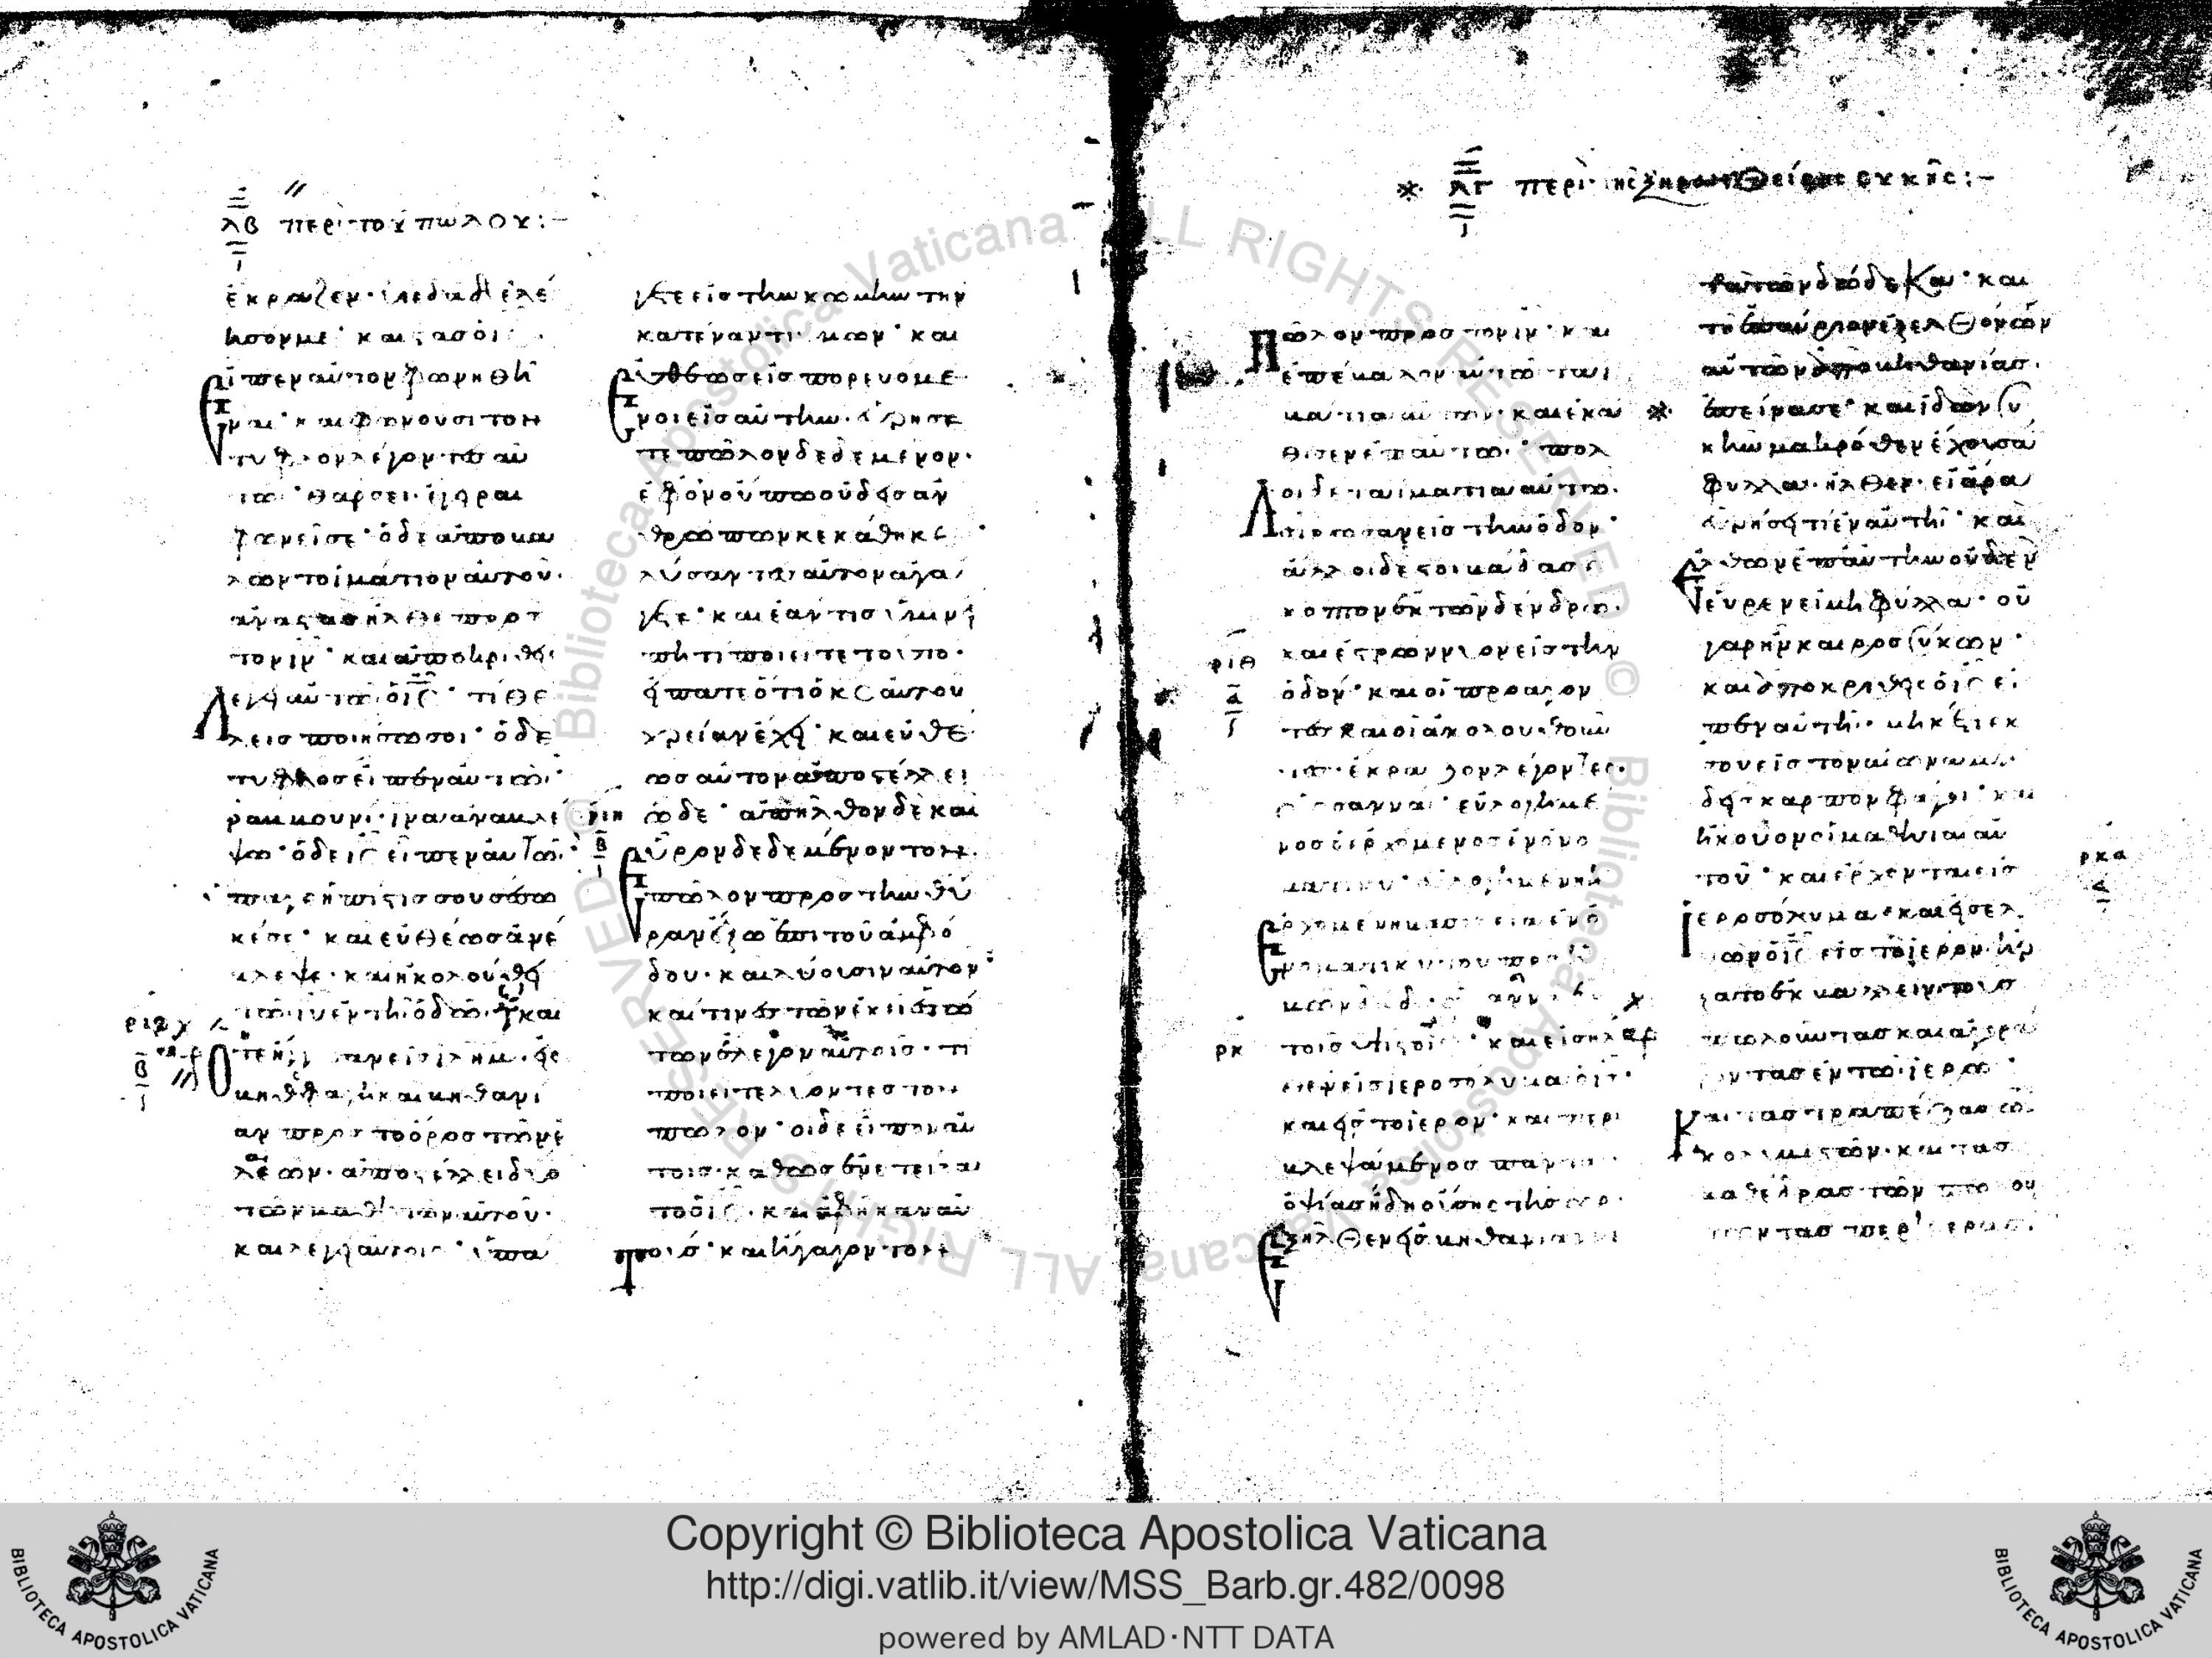 λβ περὶ τοῦ πώλου:-
ἔκραζεν· υἱὲ δαδ ἐλέ
ησόν με· καὶ στὰς ὁ ις
εἶπεν αὐτὸν φωνηθῆ
ναι· καὶ φωνοῦσι τὸν
τυφλὸν λέγοντες αὐ
τῶ· θάρσει· ἔγειραι
φωνεῖ σε· ὁ δὲ ἀποβα
λὼν τὸ ἱμάτιον αὐτοῦ·
ἀναστὰς ἦλθε πρὸς
τὸν ιν· καὶ ἀποκριθεὶς
λέγει αὐτῶ ὁ ις· τί θέ
λεις ποιήσω σοι· ὁ δὲ
τυφλὸς εἶπεν αὐτῶ·
ραββουνί· ἵνα ἀναβλέ
ψω· ὁ δὲ ις εἶπεν αὐτῶ·
ὕπαγε ἡ πίστις σου σέσω
κέ σε· καὶ εὐθέως ἀνέ
βλεψε· καὶ ἠκολούθει
τῶ ιυ ἐν τῆ ὁδῶ· καὶ
ὅτε ἐγγίζουσιν εἰς ιλημ· εἰς
βηθφαγὴ καὶ βηθανί
αν πρὸς τὸ ὄρος τῶν ἐ
λαιῶν· ἀποστέλλει δύο
τῶν μαθητῶν αὐτοῦ·
καὶ λέγει αὐτοῖς· ὑπά
γετε εἰς τὴν κώμην τὴν
κατέναντι ὑμῶν· καὶ
εὐθέως εἰσπορευόμε
νοι εἰς αὐτὴν· εὑρήσε
τε πῶλον δεδεμένον·
ἐφ' ὃν οὔπω οὐδεὶς ἀν
θρώπων κεκάθηκε
λύσαντες αὐτὸν ἀγά
γετε· καὶ ἐάν τις ὑμῖν εἴ
πη τί ποιεῖτε τοῦτο·
εἴπατε ὅτι ὁ κς αὐτοῦ
χρείαν ἔχει· καὶ εὐθέ
ως αὐτὸν ἀποστέλλει
ριη ὧδε· ἀπῆλθον δὲ καὶ
β εὗρον δεδεμένον τὸν
πῶλον πρὸς τὴν θύ
ραν ἔξω ἐπὶ τοῦ ἀμφό
δου· καὶ λύουσιν αὐτόν·
καί τινες τῶν ἐκεῖ ἑστώ
των ἔλεγον αὐτοῖς· τί
ποιεῖτε λύοντες τὸν
πῶλον· οἱ δὲ εἶπον αὐ
τοῖς· καθὼς ἐνετείλα
το ὁ ις· καὶ ἀφῆκαν αὐ
τούς· καὶ ἤγαγον τὸν
λγ περὶ τῆς ξηρανθείσης συκῆς:-
πῶλον πρὸς τὸν ιν· καὶ
ἐπέβαλον αὐτῶ τὰ ἱ
μάτια αὐτῶν· καὶ ἐκά
θισεν ἐπ' αὐτῶ· πολ
λοὶ δὲ τὰ ἱμάτια αὐτῶν
ἔστρωσαν εἰς τὴν ὁδόν·
ἄλλοι δὲ στοιβάδας ἔ
κοπτον ἐκ τῶν δένδρων·
καὶ ἐστρώννυον εἰς τὴν
ριθ ὁδόν· καὶ οἱ προάγον
τες καὶ οἱ ἀκολουθοῦν
τες ἔκραζον λέγοντες·
ὡσαννά· εὐλογημέ
νος ὁ ἐρχόμενος ἐν ὀνό
ματι κυ· εὐλογημένη ἡ
ἐρχομένη βασιλεία ἐν ὀ
νόματι κυ τοῦ προς
ἡμῶν δαδ
ρκ τοῖς ὑψίστοις· καὶ εἰσῆλ
θεν εἰς ἱεροσόλυμα ὁ ις·
καὶ εἰς τὸ ἱερόν· καὶ περι
βλεψάμενος πάντα·
ὀψίας ἤδη οὔσης τῆς ὥρας
ἐξῆλθεν εἰς βηθανίαν
μετὰ τῶν δώδεκα· καὶ
τῆ ἐπαύριον ἐξελθόντων
αὐτῶν ἀπὸ βηθανίας·
ἐπείνασε· καὶ ἰδὼν συ
κῆν μακρόθεν ἔχουσαν
φύλλα· ἦλθεν· εἰ ἄρα
εὑρήσει τι ἐν αὐτῆ· καὶ
ἐλθὼν ἐπ' αὐτὴν οὐδὲν
εὗρεν εἰ μὴ φύλλα· οὐ
γὰρ ἦν καιρὸς σύκων·
καὶ ἀποκριθεὶς ὁ ις εἶ
πεν αὐτῆ· μηκέτι ἐκ
σοῦ εἰς τὸν αἰῶνα μη
δεὶς καρπὸν φάγοι· καὶ
ἤκουον οἱ μαθηταὶ αὐ
ρκα τοῦ· καὶ ἔρχονται εἰς
ἱεροσόλυμα· καὶ εἰσελ
θὼν ὁ ις εἰς τὸ ἱερὸν ἤρ
ξατο ἐκβάλλειν τοὺς
πωλοῦντας καὶ ἀγορά
ζοντας ἐν τῶ ἱερῶ·
καὶ τὰς τραπέζας τῶν
κολλυβιστῶν· καὶ τὰς
καθέδρας τῶν πωλούν
των τὰς περιστερὰς·
Copyright © Biblioteca Apostolica Vaticana
http://digi.vatlib.it/view/MSS_Barb.gr.482/0098
powered by AMLAD·NTT DATA